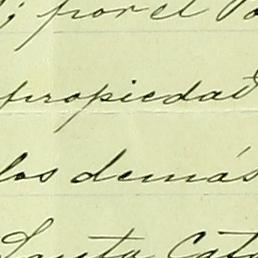 ; por el Po
propiedad
los demás
Santa Cata